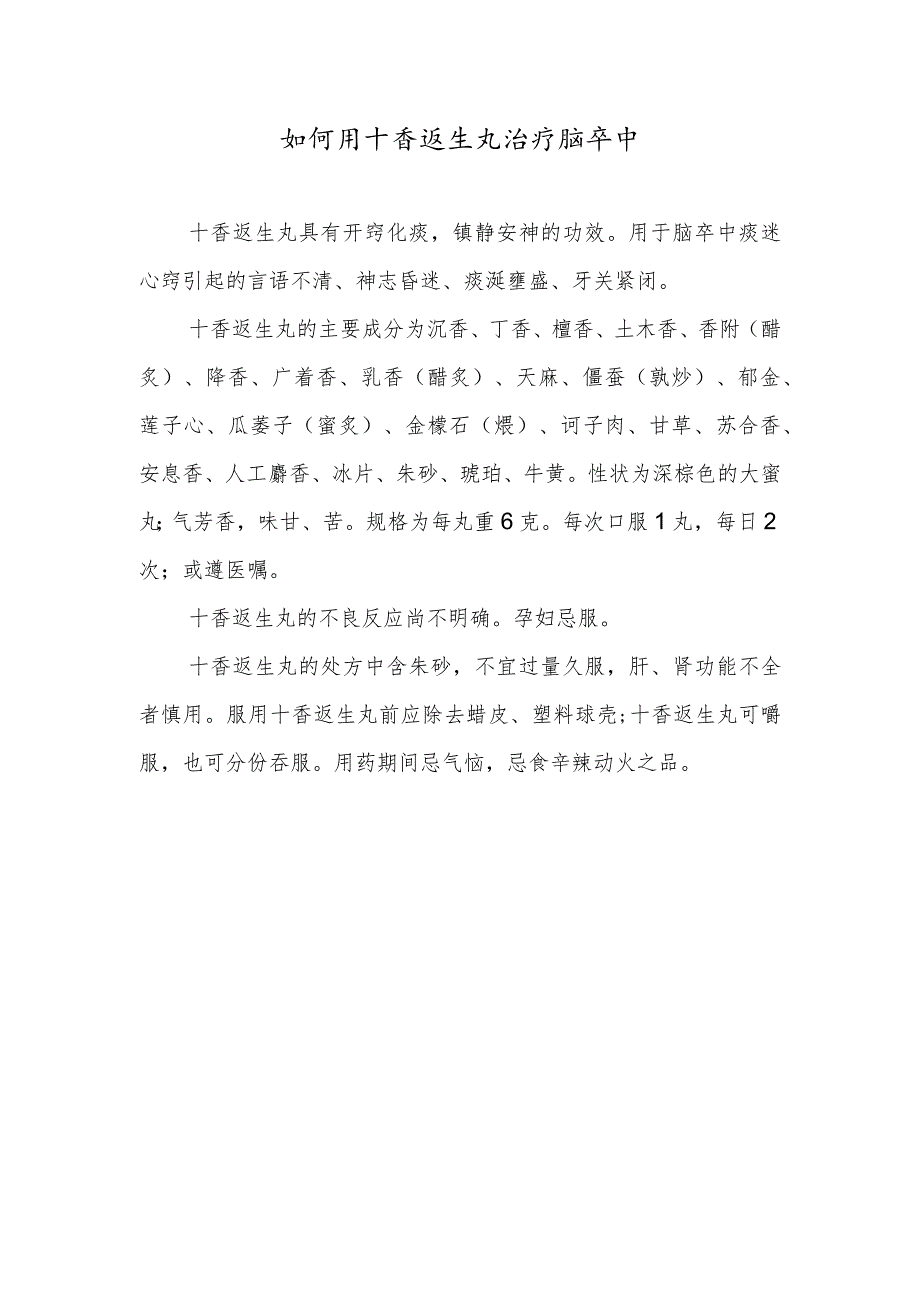 如何用十香返生丸治疗脑卒中
十香返生丸具有开窍化痰，镇静安神的功效。用于脑卒中痰迷
心窍引起的言语不清、神志昏迷、痰涎壅盛、牙关紧闭。
十香返生丸的主要成分为沉香、丁香、檀香、土木香、香附（醋
炙）、降香、广着香、乳香（醋炙）、天麻、僵蚕（孰炒）、郁金、
莲子心、瓜蒌子（蜜炙）、金檬石（煨）、诃子肉、甘草、苏合香、
安息香、人工麝香、冰片、朱砂、琥珀、牛黄。性状为深棕色的大蜜
丸；气芳香，味甘、苦。规格为每丸重6克。每次口服1丸，每日2
次；或遵医嘱。
十香返生丸的不良反应尚不明确。孕妇忌服。
十香返生丸的处方中含朱砂，不宜过量久服，肝、肾功能不全
者慎用。服用十香返生丸前应除去蜡皮、塑料球壳;十香返生丸可嚼
服，也可分份吞服。用药期间忌气恼，忌食辛辣动火之品。